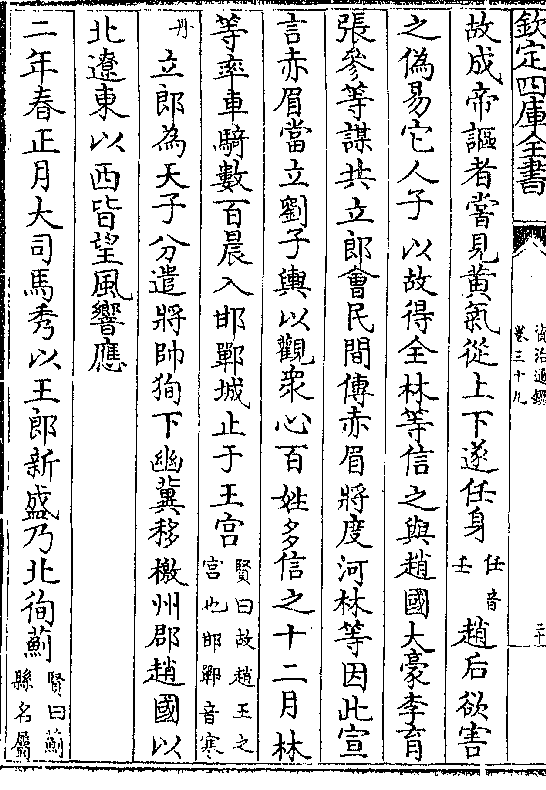 欽定四庫全書
資治通鑑
卷三十九
二十
故成帝謳者嘗見黃氣從上下遂任身任音壬趙后欲害
之偽易它人子以故得全林等信之與趙國大豪李育
張參等謀共立郎會民間傳赤眉將度河林等因此宣
言赤眉當立劉子輿以觀衆心百姓多信之十二月林
等率車騎數百晨入邯鄲城止于王宫賢曰故趙王之宫也邯鄲音寒
丹立郎為天子分遣將帥徇下幽冀移檄州郡趙國以
北遼東以西皆望風響應
二年春正月大司馬秀以王郎新盛乃北徇薊賢曰薊縣名屬